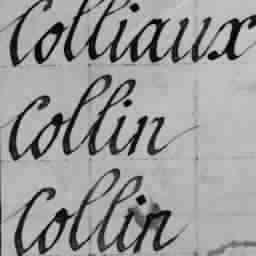 Colliaux
Collin
Collin